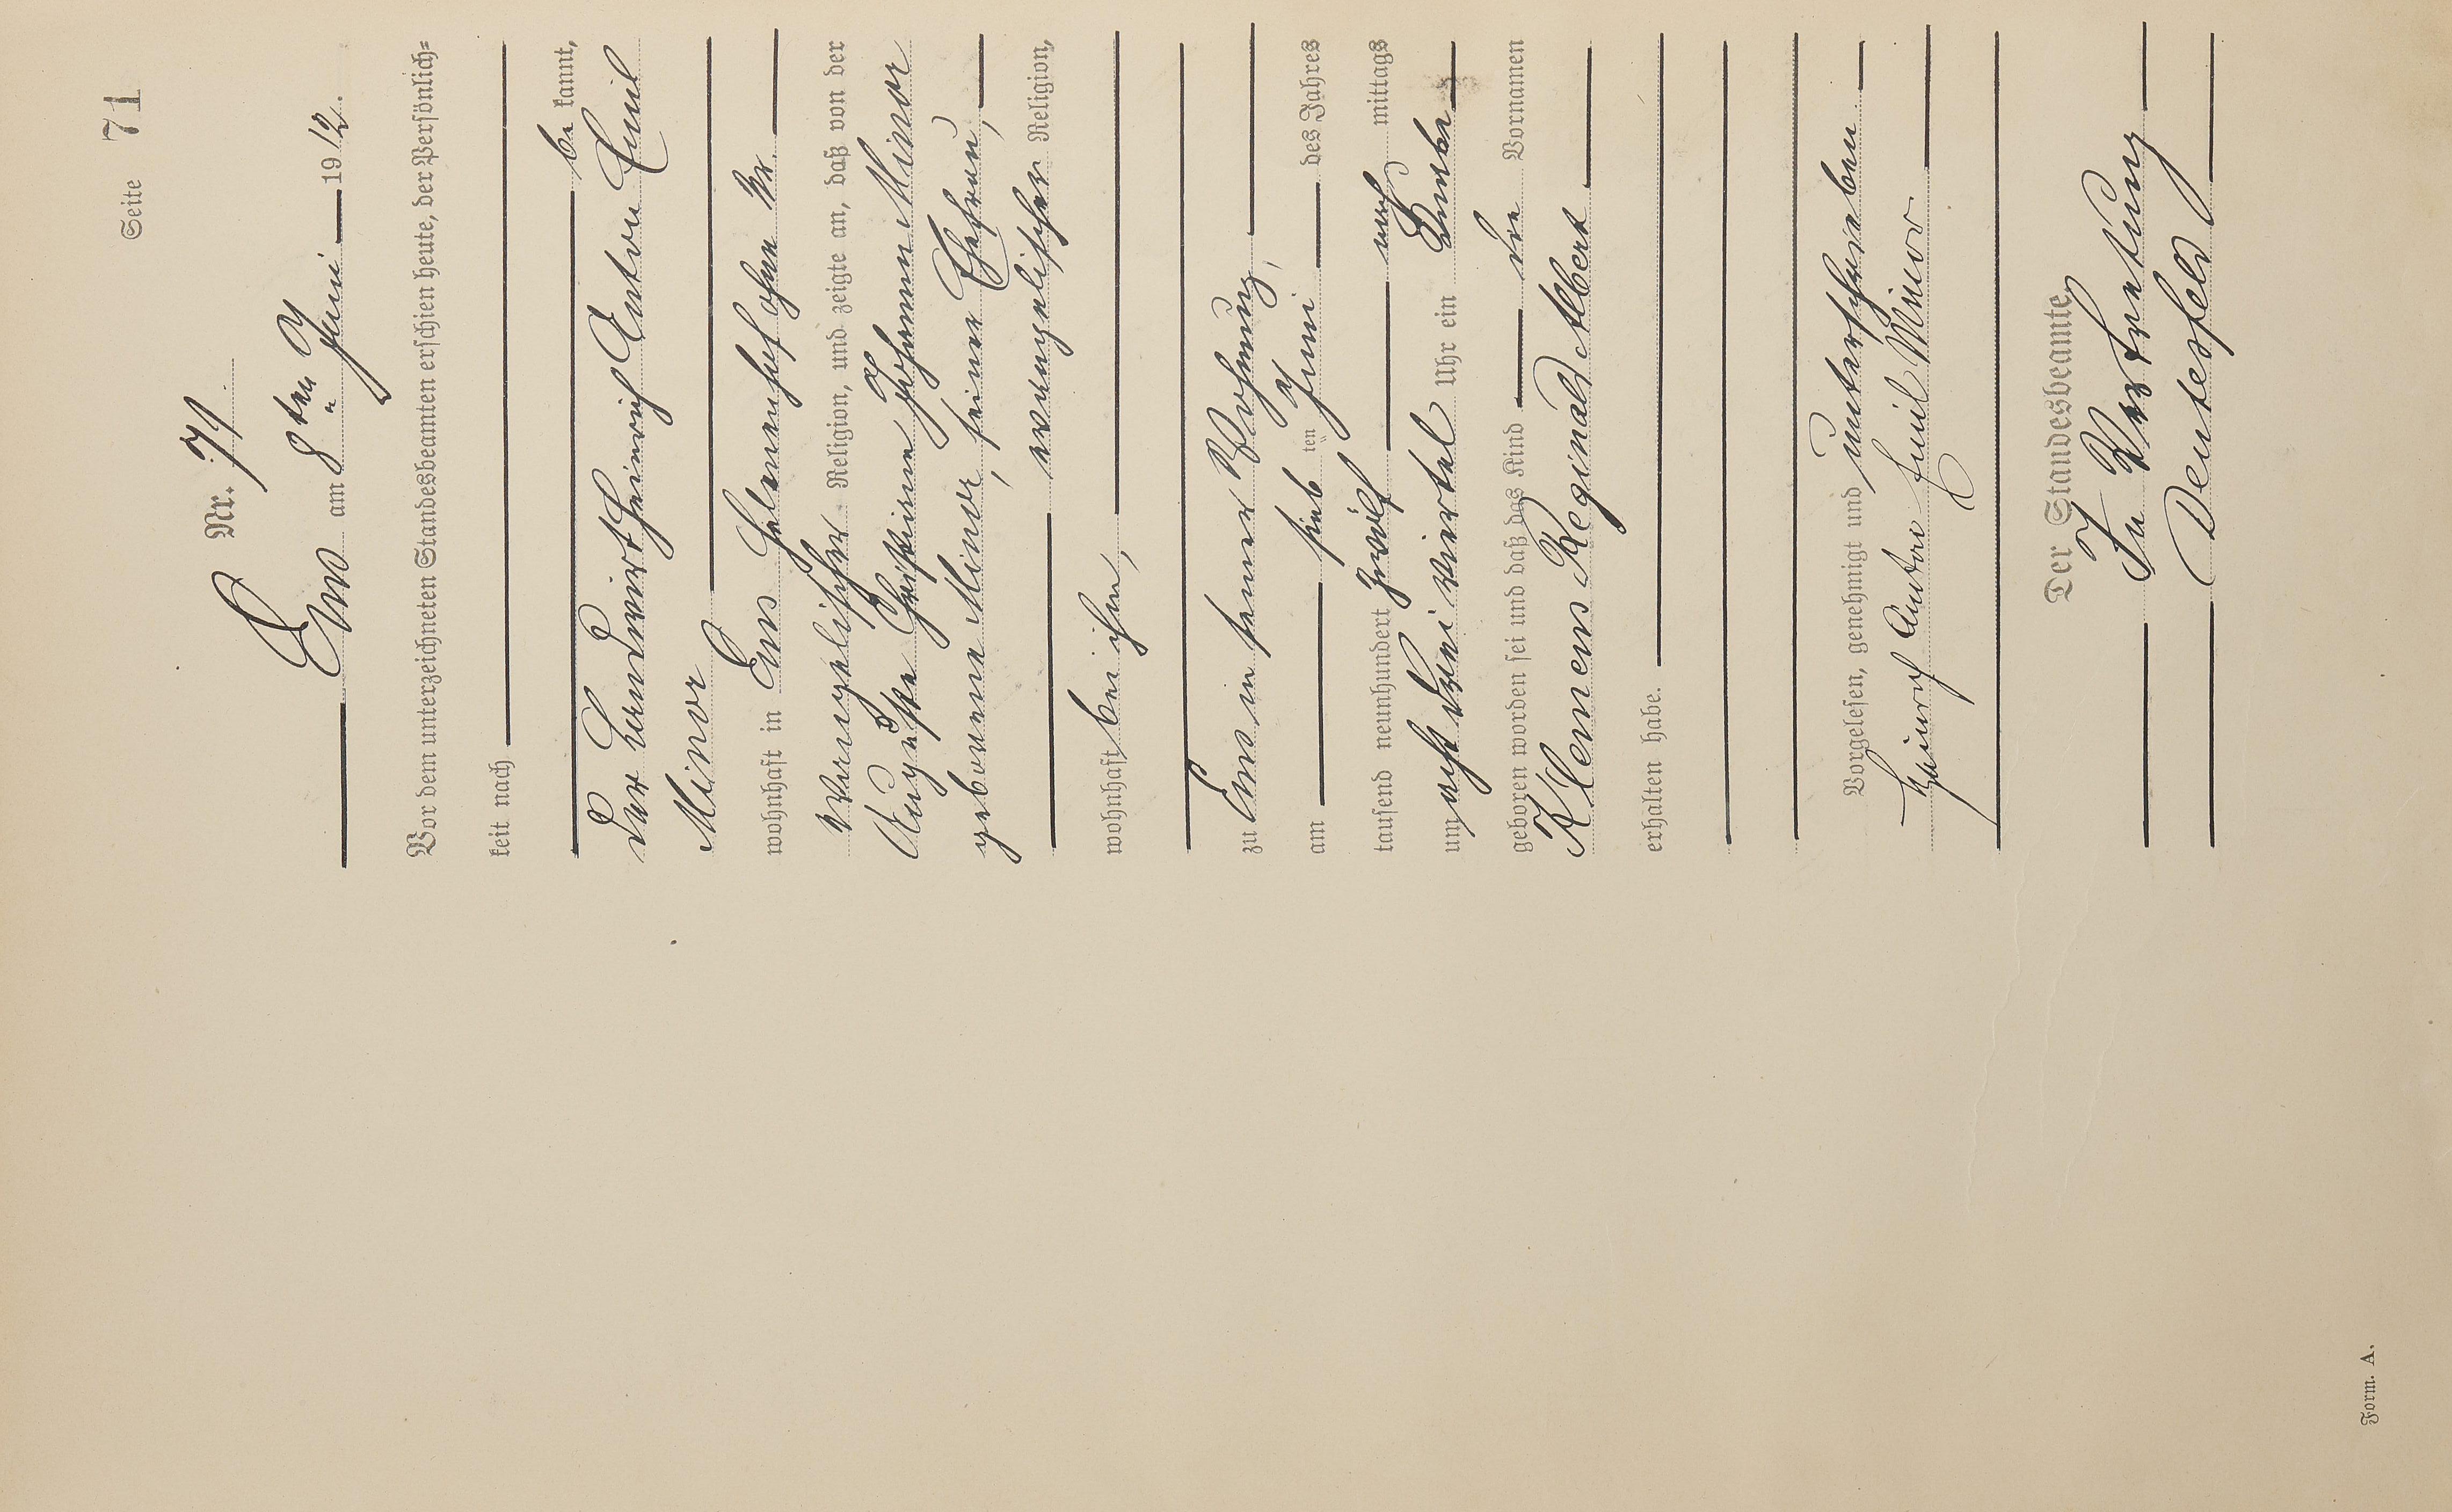 Seite 71
Nr. 71
Ems am 8ten Juni 1912.
Vor dem unterzeichneten Standesbeamten erschien heute, der Persönlich-
keit nach
be kannt,
der Landwirt Heinrich Anton Emil
Minor
wohnhaft in Ems Nr.
evangelischer Religion, und zeigte an, daß von der
Auguste Christiane Johanna Minor
geborene Minor, seiner Ehefrau,
evangelischer Religion,
wohnhaft bei ihm,
zu Ems in seiner Wohnung,
am ten Juni des Jahres
tausend neunhundert zwölf nach mittags
um acht drei viertel Uhr ein Knabe
geboren worden sei und daß das Kind die Vornamen
Klemens Reginald Albert
erhalten habe.
Vorgelesen, genehmigt und unterschrieben
Heinrich Anton Emil Minor.
Der Standesbeamte
In Vertretung
Deutesfeld
Form. A.